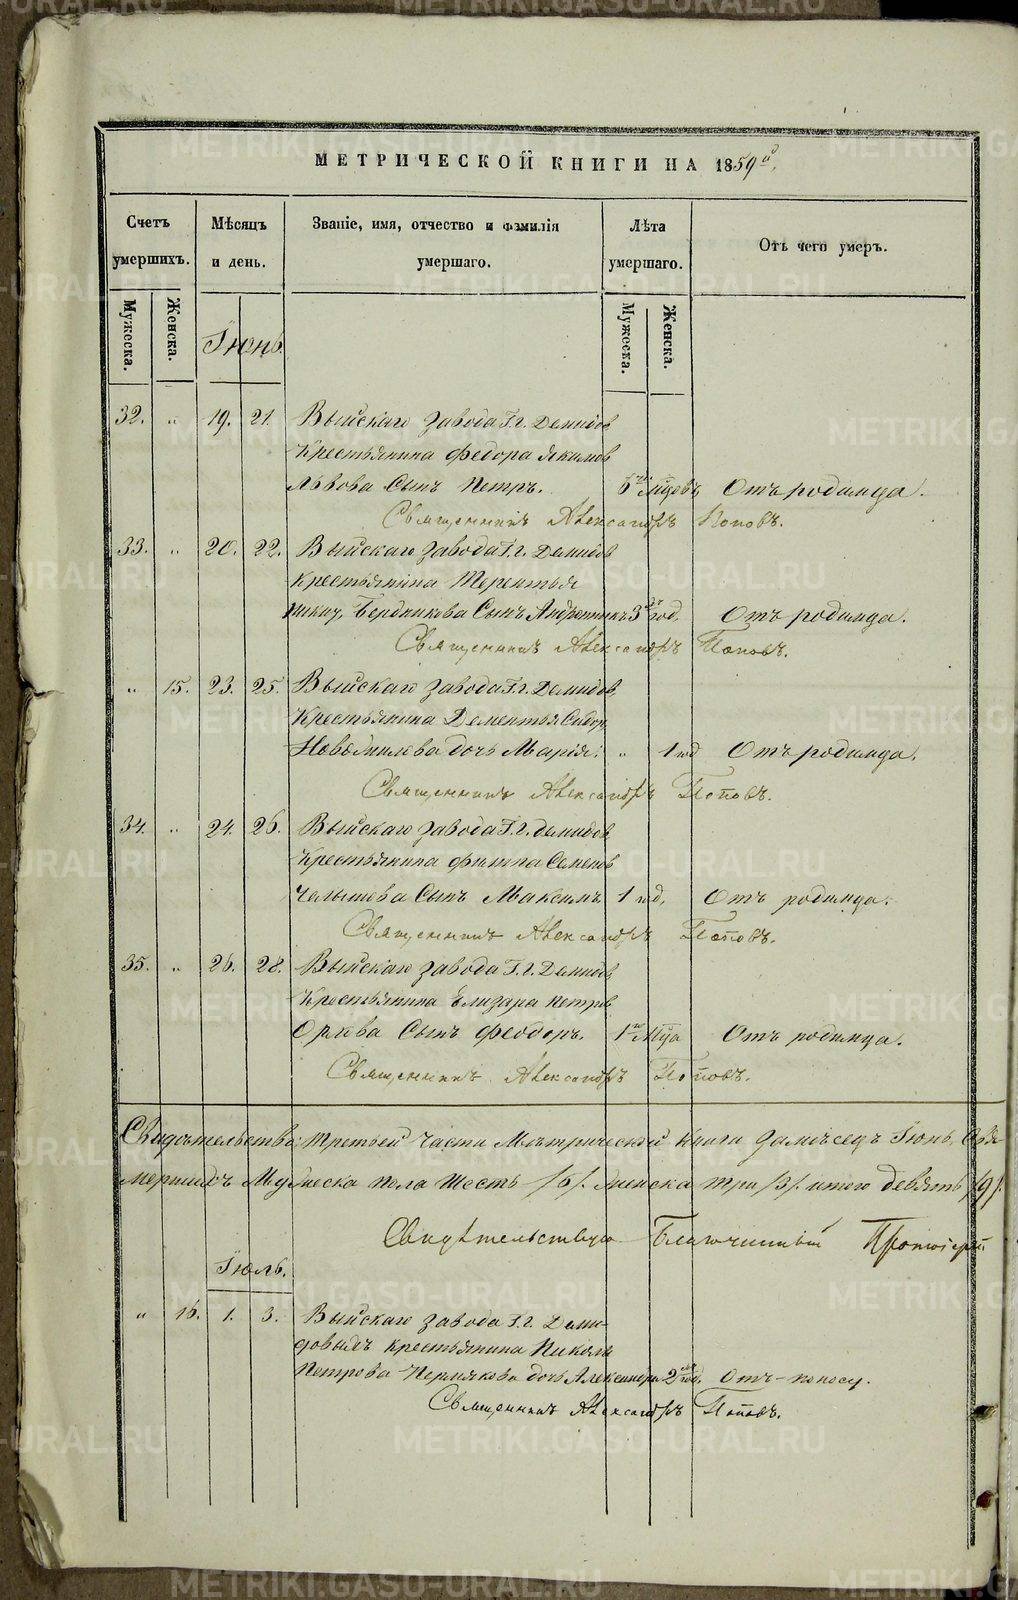 МЕТРИЧЕСКОЙ КНИГИ НА 1859й
Счетъ умершихъ.
Мѣсяцъ и день.
Званіе, имя, отчество и фамилія умершаго.
Лѣта умершаго.
Отъ чего умеръ.
Мужеска. Женска.
Мужеска. Женска.
Іюнь.
32. „ 19. 21. Выйскаго завода Г.г. Демидов
Крестьянина Федора Якимов
Львова Сынъ Петръ. 6ти мцовъ Отъ родимца.
Священникъ Александръ Поповъ.
33. „ 20. 22. Выйскаго завода Г.г. Демидов
Крестьянина Терентья
Бердникова Сынъ 3 год. Отъ родимца.
Священникъ Александръ Поповъ.
„ 15. 23. 25. Выйскаго завода Г.г. Демидов
Крестьянина Дементья Сидор.
дочь Марія. „ 1 год Отъ родимца.
Священникъ Александръ Поповъ.
34. „ 24. 26. Выйскаго завода Г.г. Демидов
Крестьянина Филипа Семенов
Челышева Сынъ Максимъ 1 год. Отъ родимца.
Священникъ Александръ Поповъ.
35. „ 26. 28. Выйскаго завода Г.г. Демидов
Крестьянина Елизара Петров
Орлова Сынъ Феодоръ. 1го мца Отъ родимца.
Священникъ Александръ Поповъ.
третьей части Метрической книги за месецъ Іюнь,
мершихъ Мужеска пола шесть /6/. женска три /3/. итого девять /9/.
Свидѣтельствую Благочинный Протоіерей
Іюль.
„ 16. 1. 3. Выйскаго завода Г.г. Деми-
довыхъ крестьянина Николы
Петрова Пермякова дочь Александра 2 год. Отъ поносу.
Священникъ Александръ Поповъ.
METRIKI.GASO-URAL.RU